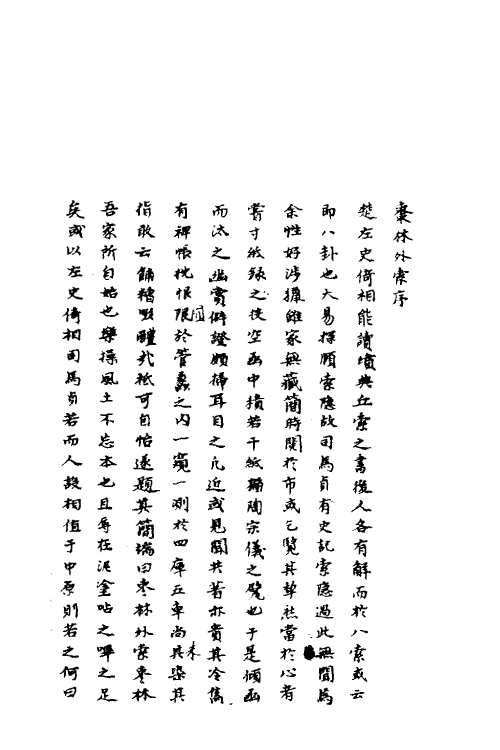 棗林外索序
楚左史倚相能讀墳典丘索之書後人各有解而於八索或云
即八卦也大易探賾索隱故司馬貞有史記索隱過此無聞焉
余性好涉獵雖家無藏簡時閱於市或乞覽其犁然當於心者
嘗寸紙錄之投空函中積若干紙猶陶宗儀之甓也于是傾函
而汰之幽賞僻證頗掃耳目之凡近或見聞共著亦貴其冷雋
有裨帳枕恨限於管蠡之內一窺一測於四庫五車尚未具染其
指敢云餔糟啜醨孔祗可自怡遂題其簡端曰棗林外索棗林
吾家所自始也樂操風土不忘本也且辱在泥塗呫之嗶之足
矣或以左史倚相司馬貞若而人設相值于中原則若之何曰